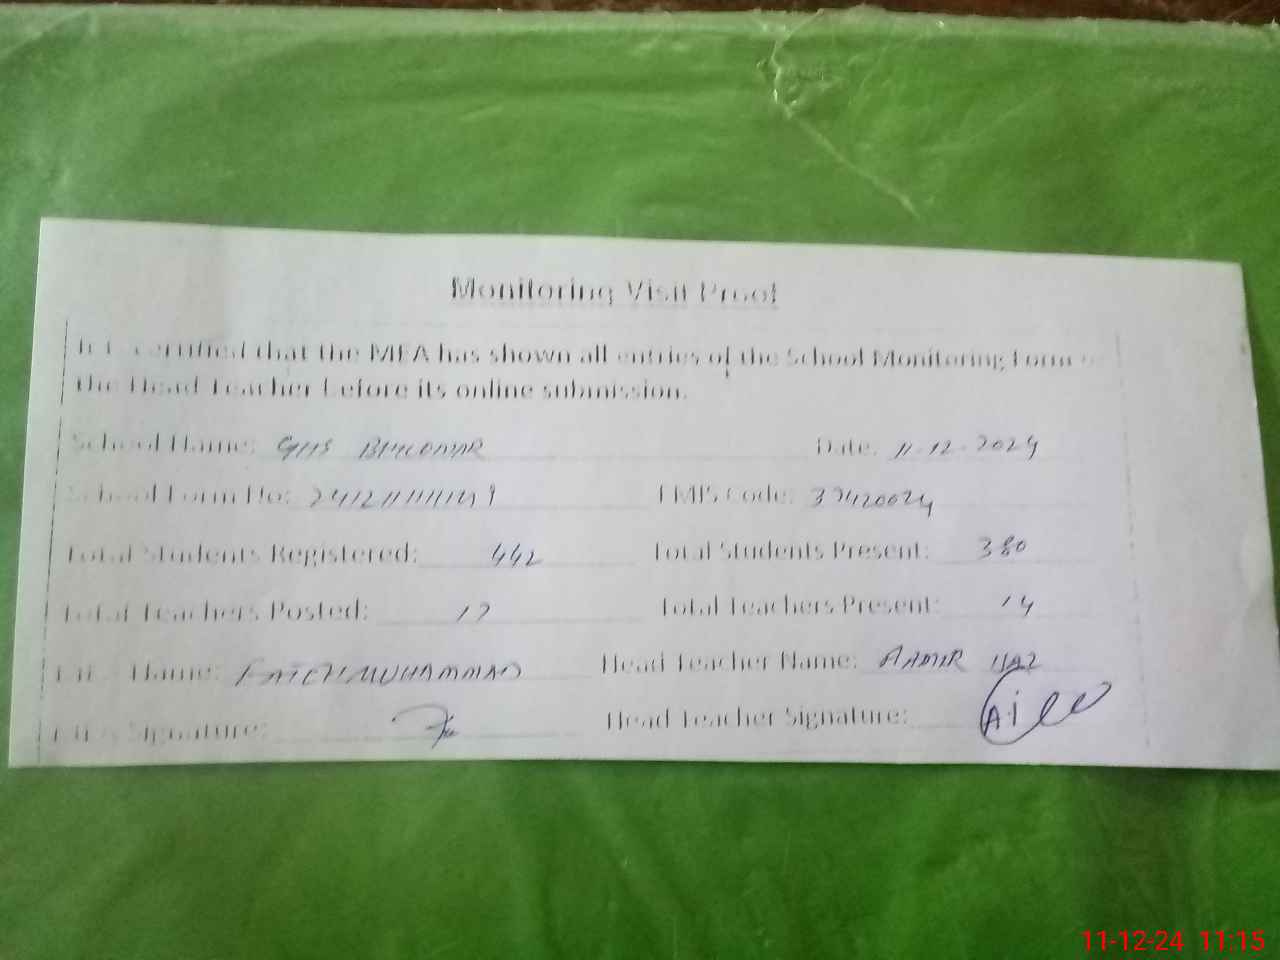 Monitoring Visit Proof
It is certified that the MEA has shown all entries of the School Monitoring Form
the Head Teacher before its online submission.
School Name: GHS Date: 11-12-2024
School Form No: EMIS Code:
Total Students Registered: 442 Total Students Present: 380
Total Teachers Posted: 17 Total Teachers Present: 14
MEA Name: FATEH MUHAMMAD Head Teacher Name: AAMIR
MEA Signature: Head Teacher Signature:
11-12-24 11:15